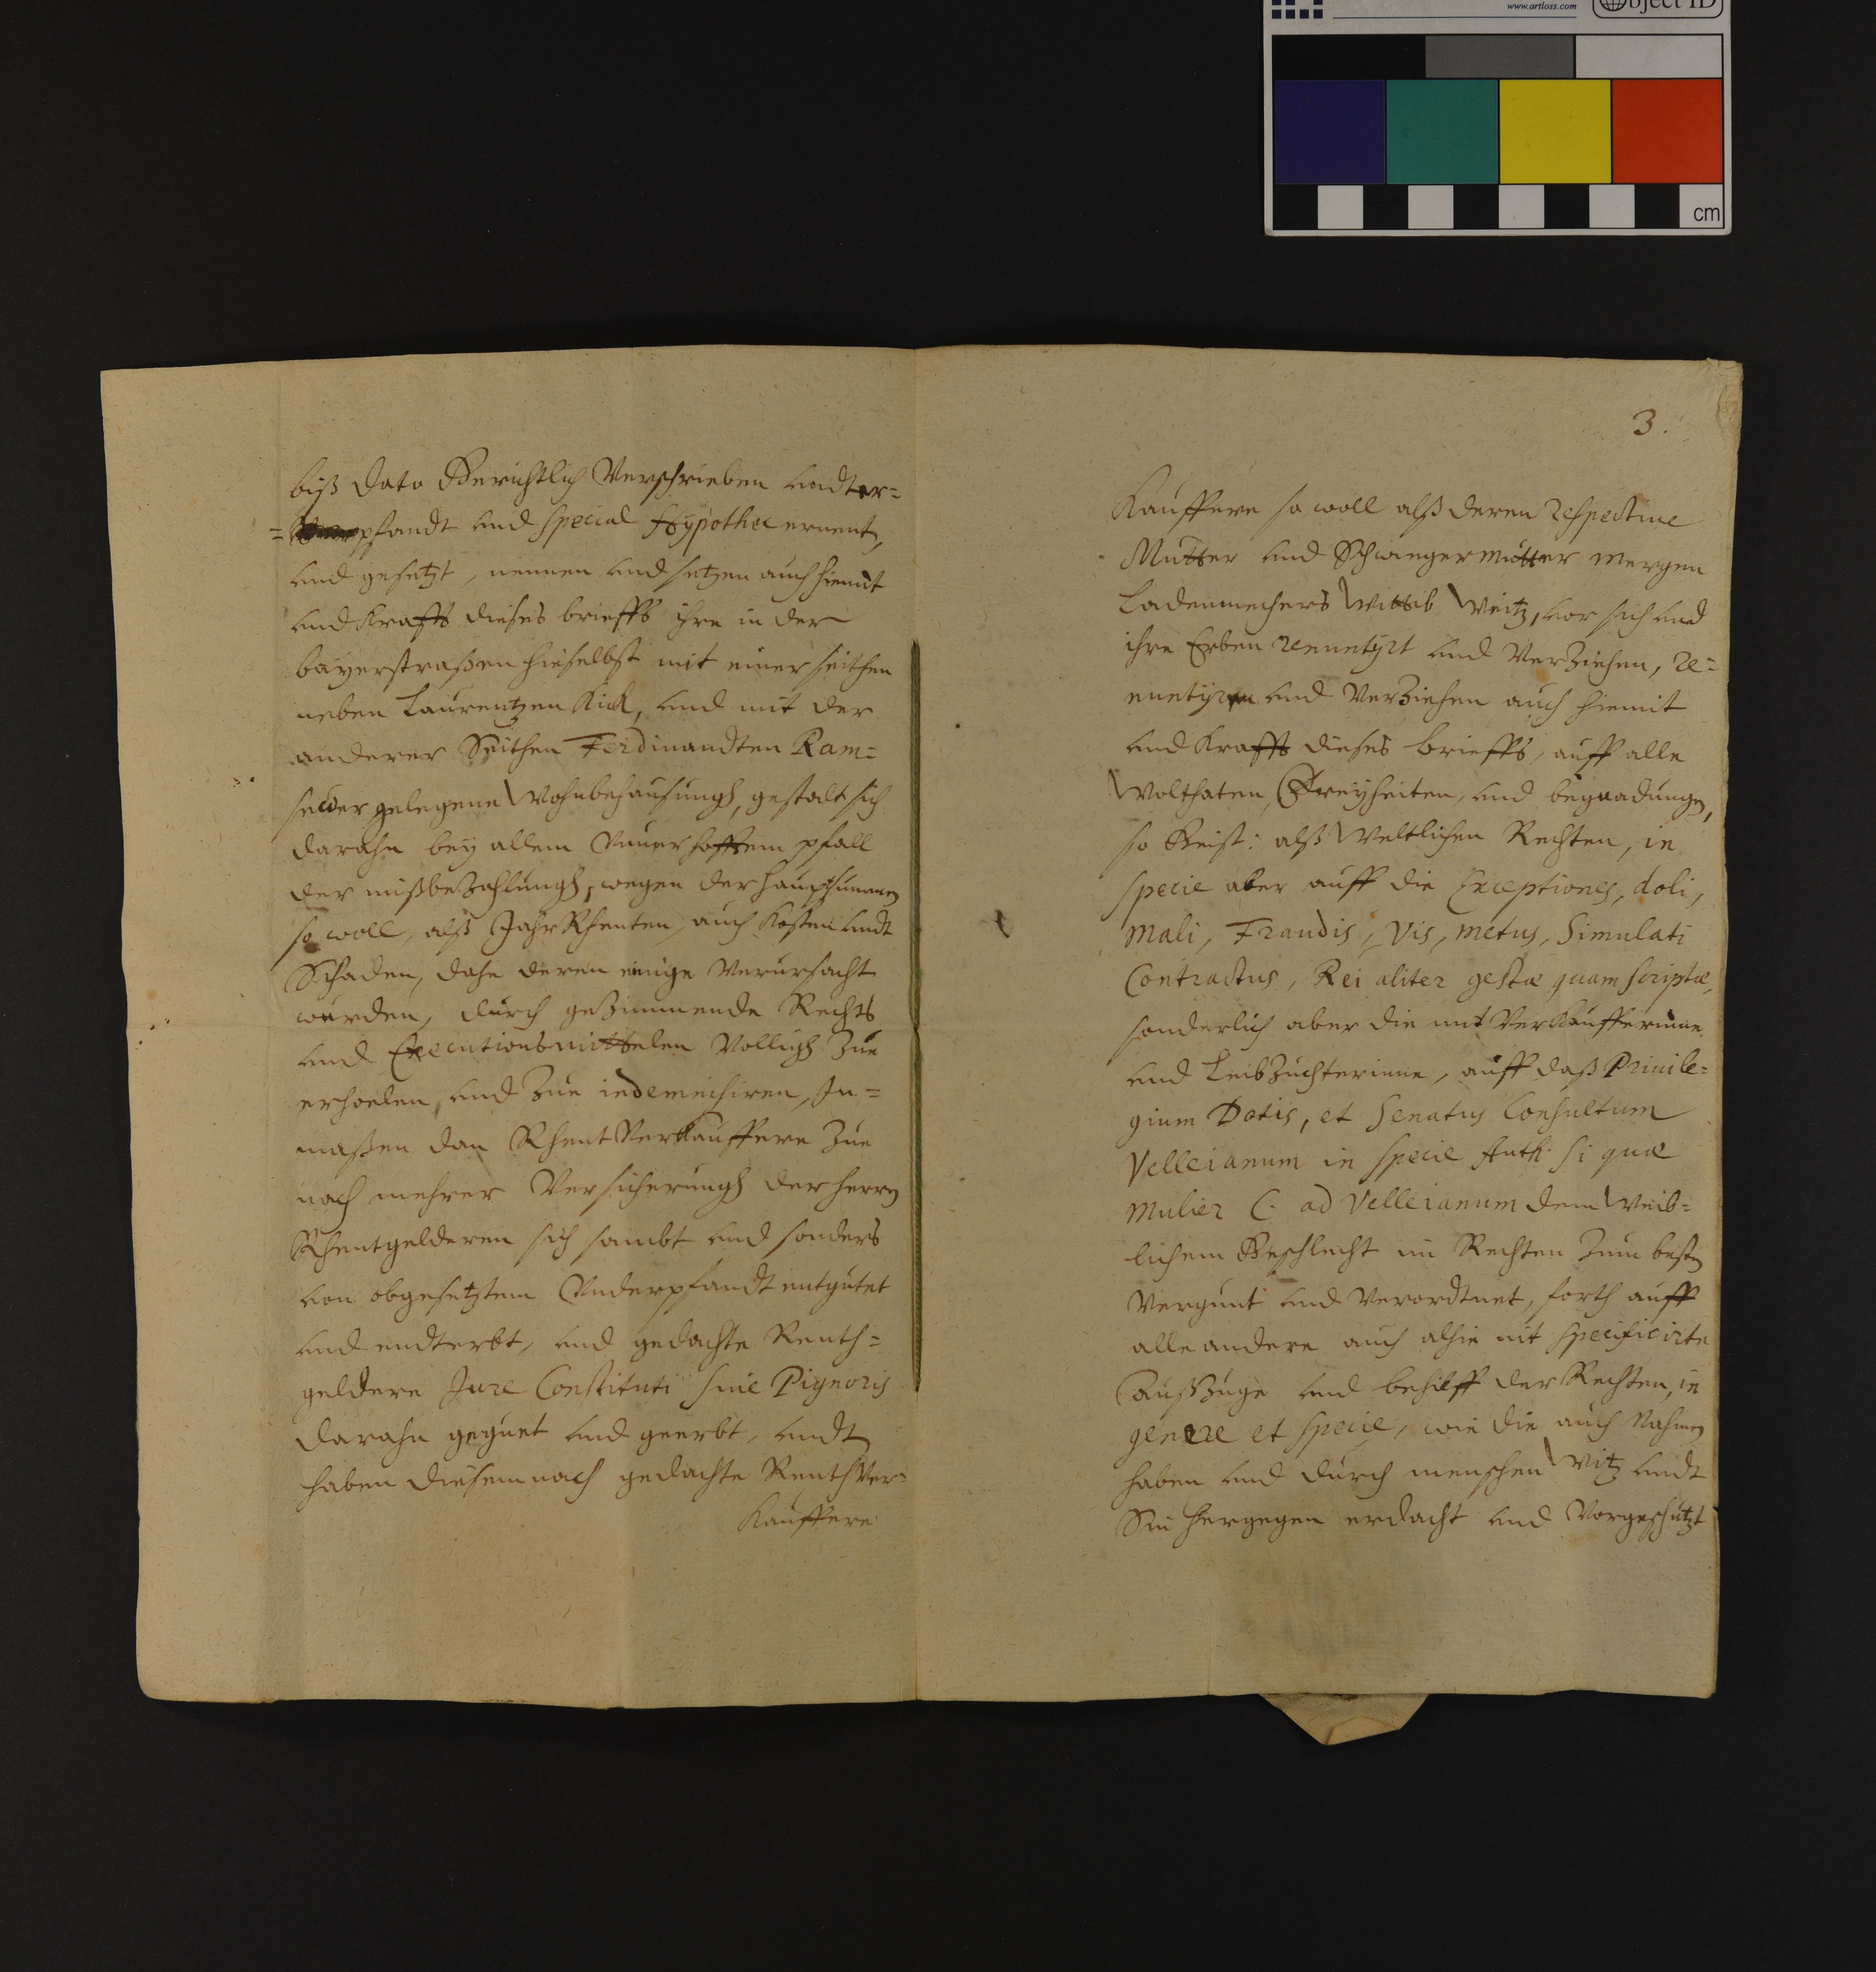 www.artloss.com
Object ID
cm
biß dato Gerichtlich Verschrieben undter=
=pfandt und special Hypothec ernent,
und gesetzt, nennen und setzen auch hiemit
und Krafft dieses brieffs ihre in der
bayerstraßen hieselbst mit einer seithen
neben Laurentzen Kick, und mit der
anderer Seithen Ferdinandten Ram=
gelegene Wohnbehausungh, gestalt sich
darahn bey allem Unverhofftem pfall
der mißbezahlungh, wegen der haupsummen
so woll, alß Jahr Rhenten, auch Kosten undt
Schaden, dahe deren einige Verursacht
wurden, durch gezimmende Rechts
und Executionsmittelen Volligh zue
erhoelen, und zue indemnisiren, In=
maßen dan Rhent Verkauffere zue
noch mehrer Versicherungh der herrn
Rhentgelderen sich sambt und sonders
von obgesetztem Underpfandt entgütet
und endterbt, und gedachte Renth=
geldere Jure Constituti sive Pignoris
darahn gegüet und geerbt, undt
haben diesem nach gedachte Renth Ver=
Kauffere
3.
Kauffere so woll alß deren respectivè
Mutter und Schwiegermutter Mergen
Ladenmechers Wittib Weitz, vor sich und
ihre Erben renuntyrt und Verziehen, re=
nuntyren und Verziehen auch hiemit
und Krafft dieses brieffs, auff alle
Wolthaten, Freyheiten, und begnadungen,
so Geist: alß Weltlichen Rechten, in
specie aber auff die Exceptiones, doli,
mali, Fraudis, Vis, metus, Simulati
Contractus, Rei aliter gestæ quam scriptæ,
sonderlich aber die mit Verkäufferinne
und Leibzuchterinne, auff daß Privile=
gium Dotis, et Senatus Consultum
Velleianum in specie Auth: Si quæ
mulier C. ad Velleianum dem Weib=
lichem Geschlecht im Rechten zum besten
Vergunt und Verordtnet, forth auff
alle andere auch alhie nit specificirte
außzuge und behilff der Rechten, in
genere et specie, wie die auch Nahmen
haben und durch menschen Witz undt
Sin hergegen erdacht und Vorgeschützt